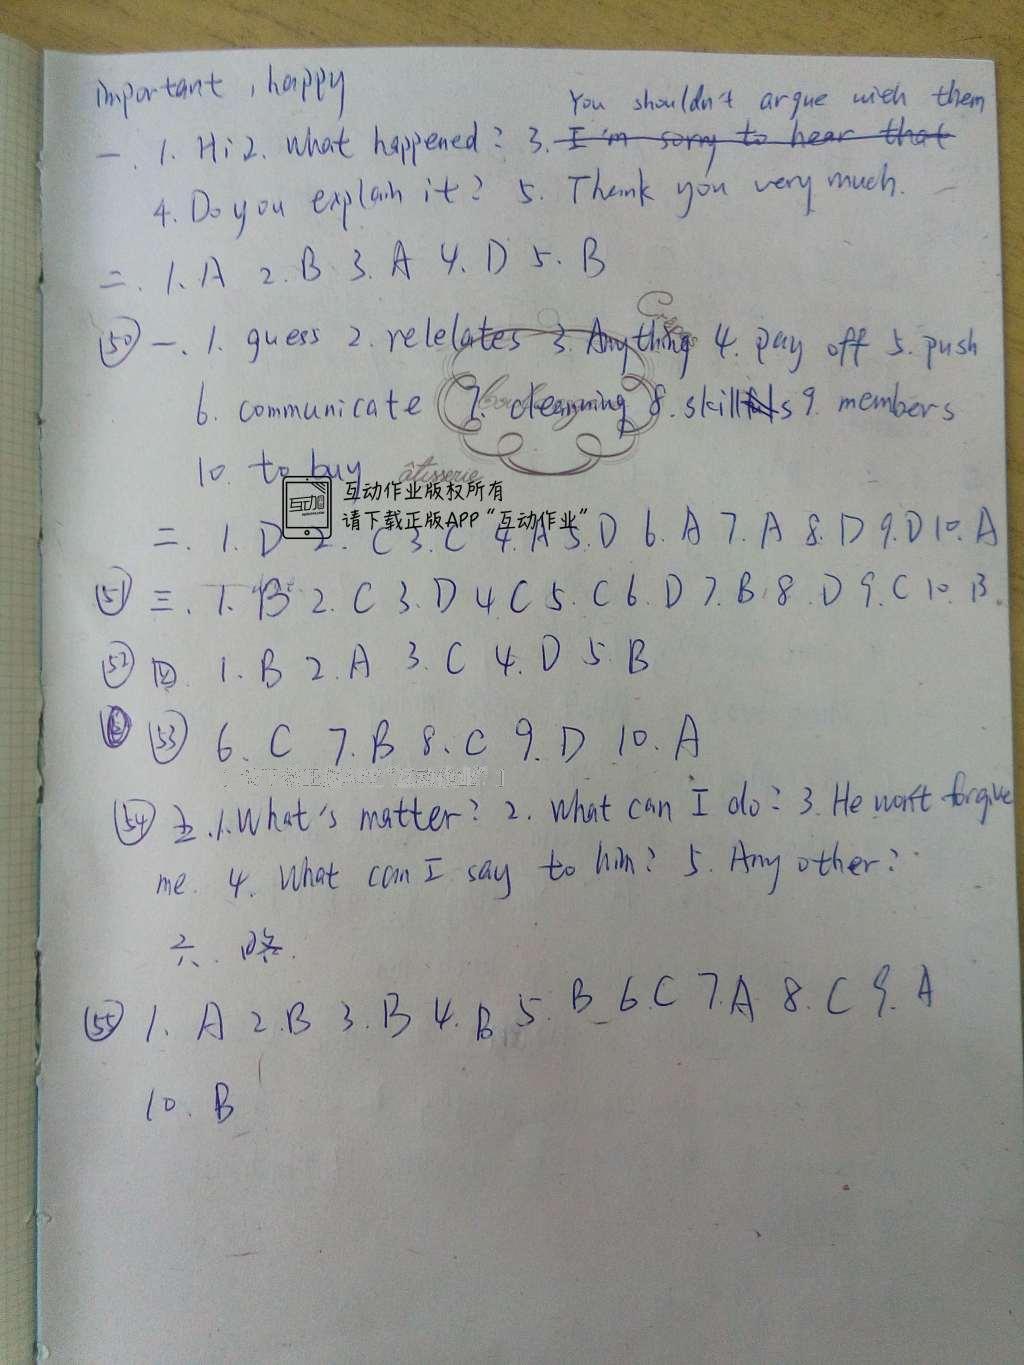 important , happy
You shouldn't argue with them
一. 1. Hi 2. What happened? 3. I'm sorry to hear that
4. Do you explain it? 5. Thank you very much.
二. 1. A 2. B 3. A 4. D 5. B
50 一. 1. guess 2. relelates 3. Anything 4. pay off 5. push
6. communicate 7. cleanning 8. skills 9. members
10. to buy
âtisserie
互动
互动作业版权所有
请下载正版APP“互动作业”
二. 1. D 2. C 3. C 4. A 5. D 6. A 7. A 8. D 9. D 10. A
51 三. 1. B 2. C 3. D 4. C 5. C 6. D 7. B 8. D 9. C 10. B.
52 四 1. B 2. A 3. C 4. D 5. B
53 6. C 7. B 8. C 9. D 10. A
54 五. 1. What's matter? 2. What can I do? 3. He won't forgive
me. 4. What can I say to him? 5. Any other?
六. 略.
55 1. A 2. B 3. B 4. B 5. B 6. C 7. A 8. C 9. A
10. B